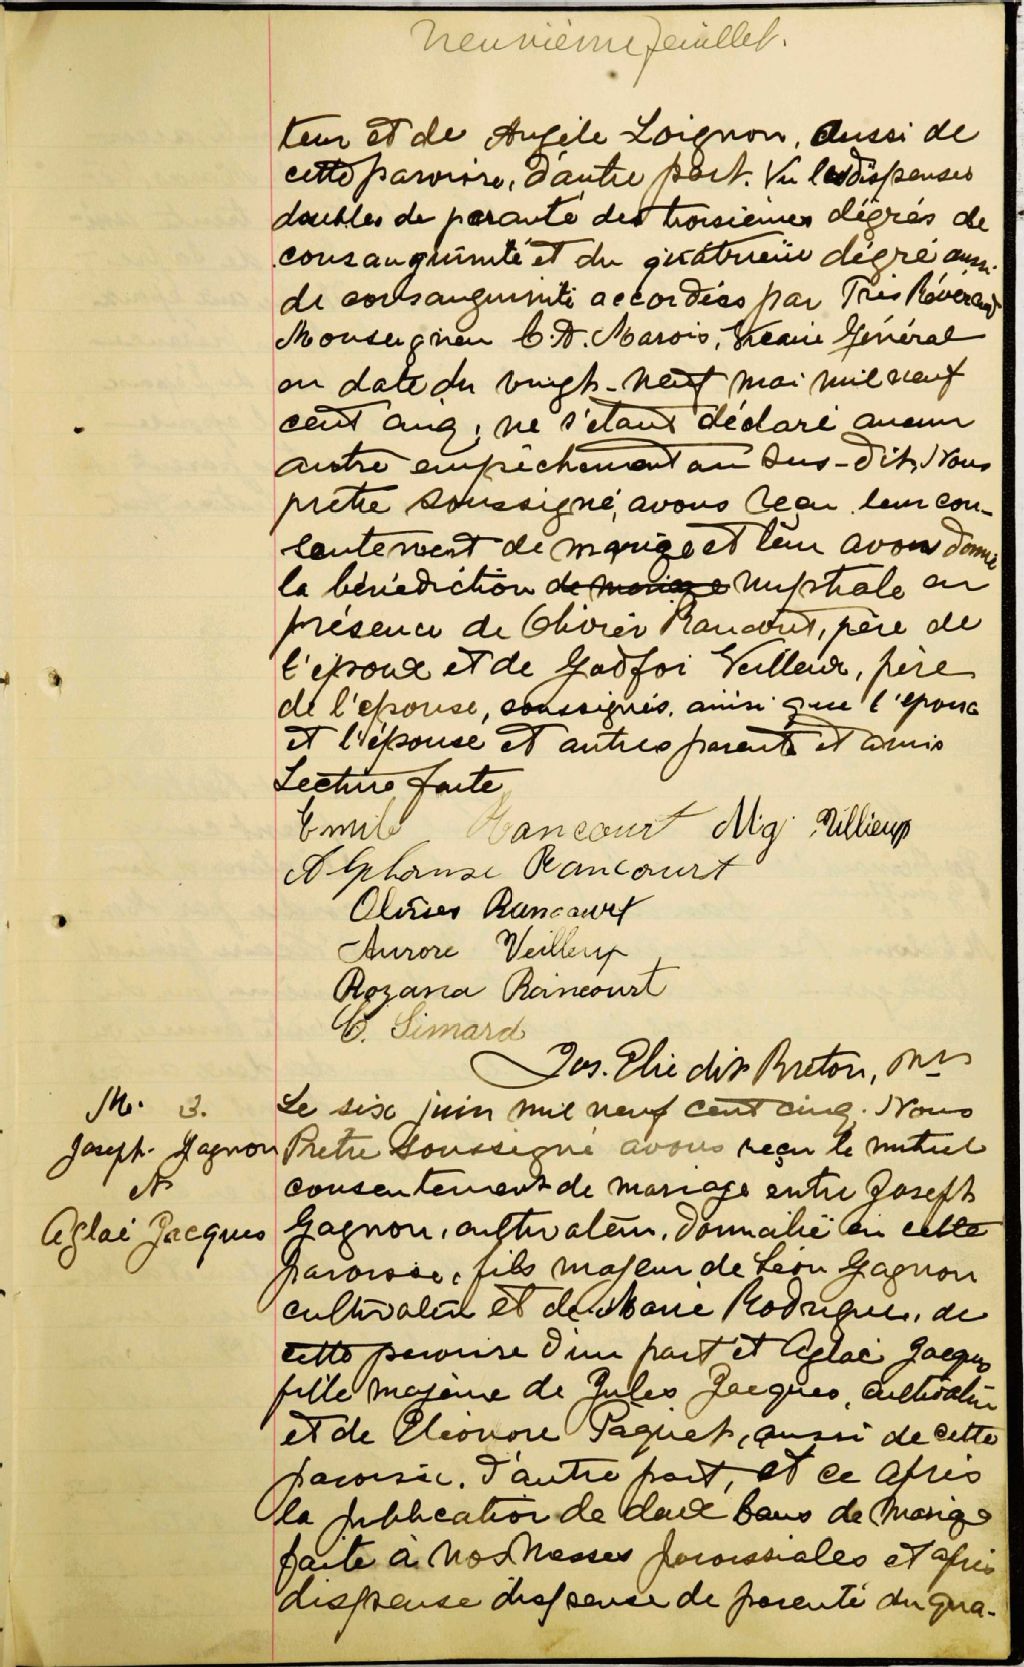 Neuvième feuillet.
teur et de Angèle Loignon, aussi de
cette paroisse, d'autre part. Vu les dispenses
doubles de paranté des troisièmes dégrés de
consanguinité et du quatrième dégré aussi
de consanguinité accordées par Très Révérend
Monseigneur C.A. Marois, Vicaire Général
en date du vingt-neuf mai mil neuf
cent cinq, ne s'étant déclaré aucun
autre empêchement au sus-dit, Nous
prêtre soussigné, avons reçu leur con-
sentement de mariage et leur avons donné
la bénédiction de mariage nuptiale en
présence de Olivier Rancourt, père de
l'époux et de Godfroi Veilleux, père
de l'épouse, soussignés, ainsi que l'époux
et l'épouse et autres parents et amis
Lecture faite
Emile Rancourt
Alphonse Rancourt
Rancourt
Aurore Veilleux
Rozana Rancourt
C. Simard
Jos. Elie dit Breton, Ptre
M. 3.
Joseph Gagnon
et
Aglaé Jacques
Le six juin mil neuf cent cinq. Nous
Prêtre soussigné avons reçu le mutuel
consentement de mariage entre Joseph
Gagnon, cultivateur, domicilié en cette
paroisse, fils majeur de Léon Gagnon
cultivateur et de Marie Rodrigue, de
cette paroisse d'une part et Aglaé Jacques
fille majeure de Jules Jacques, cultivateur
et de Eléonore Paquet, aussi de cette
paroisse, d'autre part, et ce après
la publication de deux bans de mariage
faite à nos Messes paroissiales et après
dispense dispense de parenté du qua-